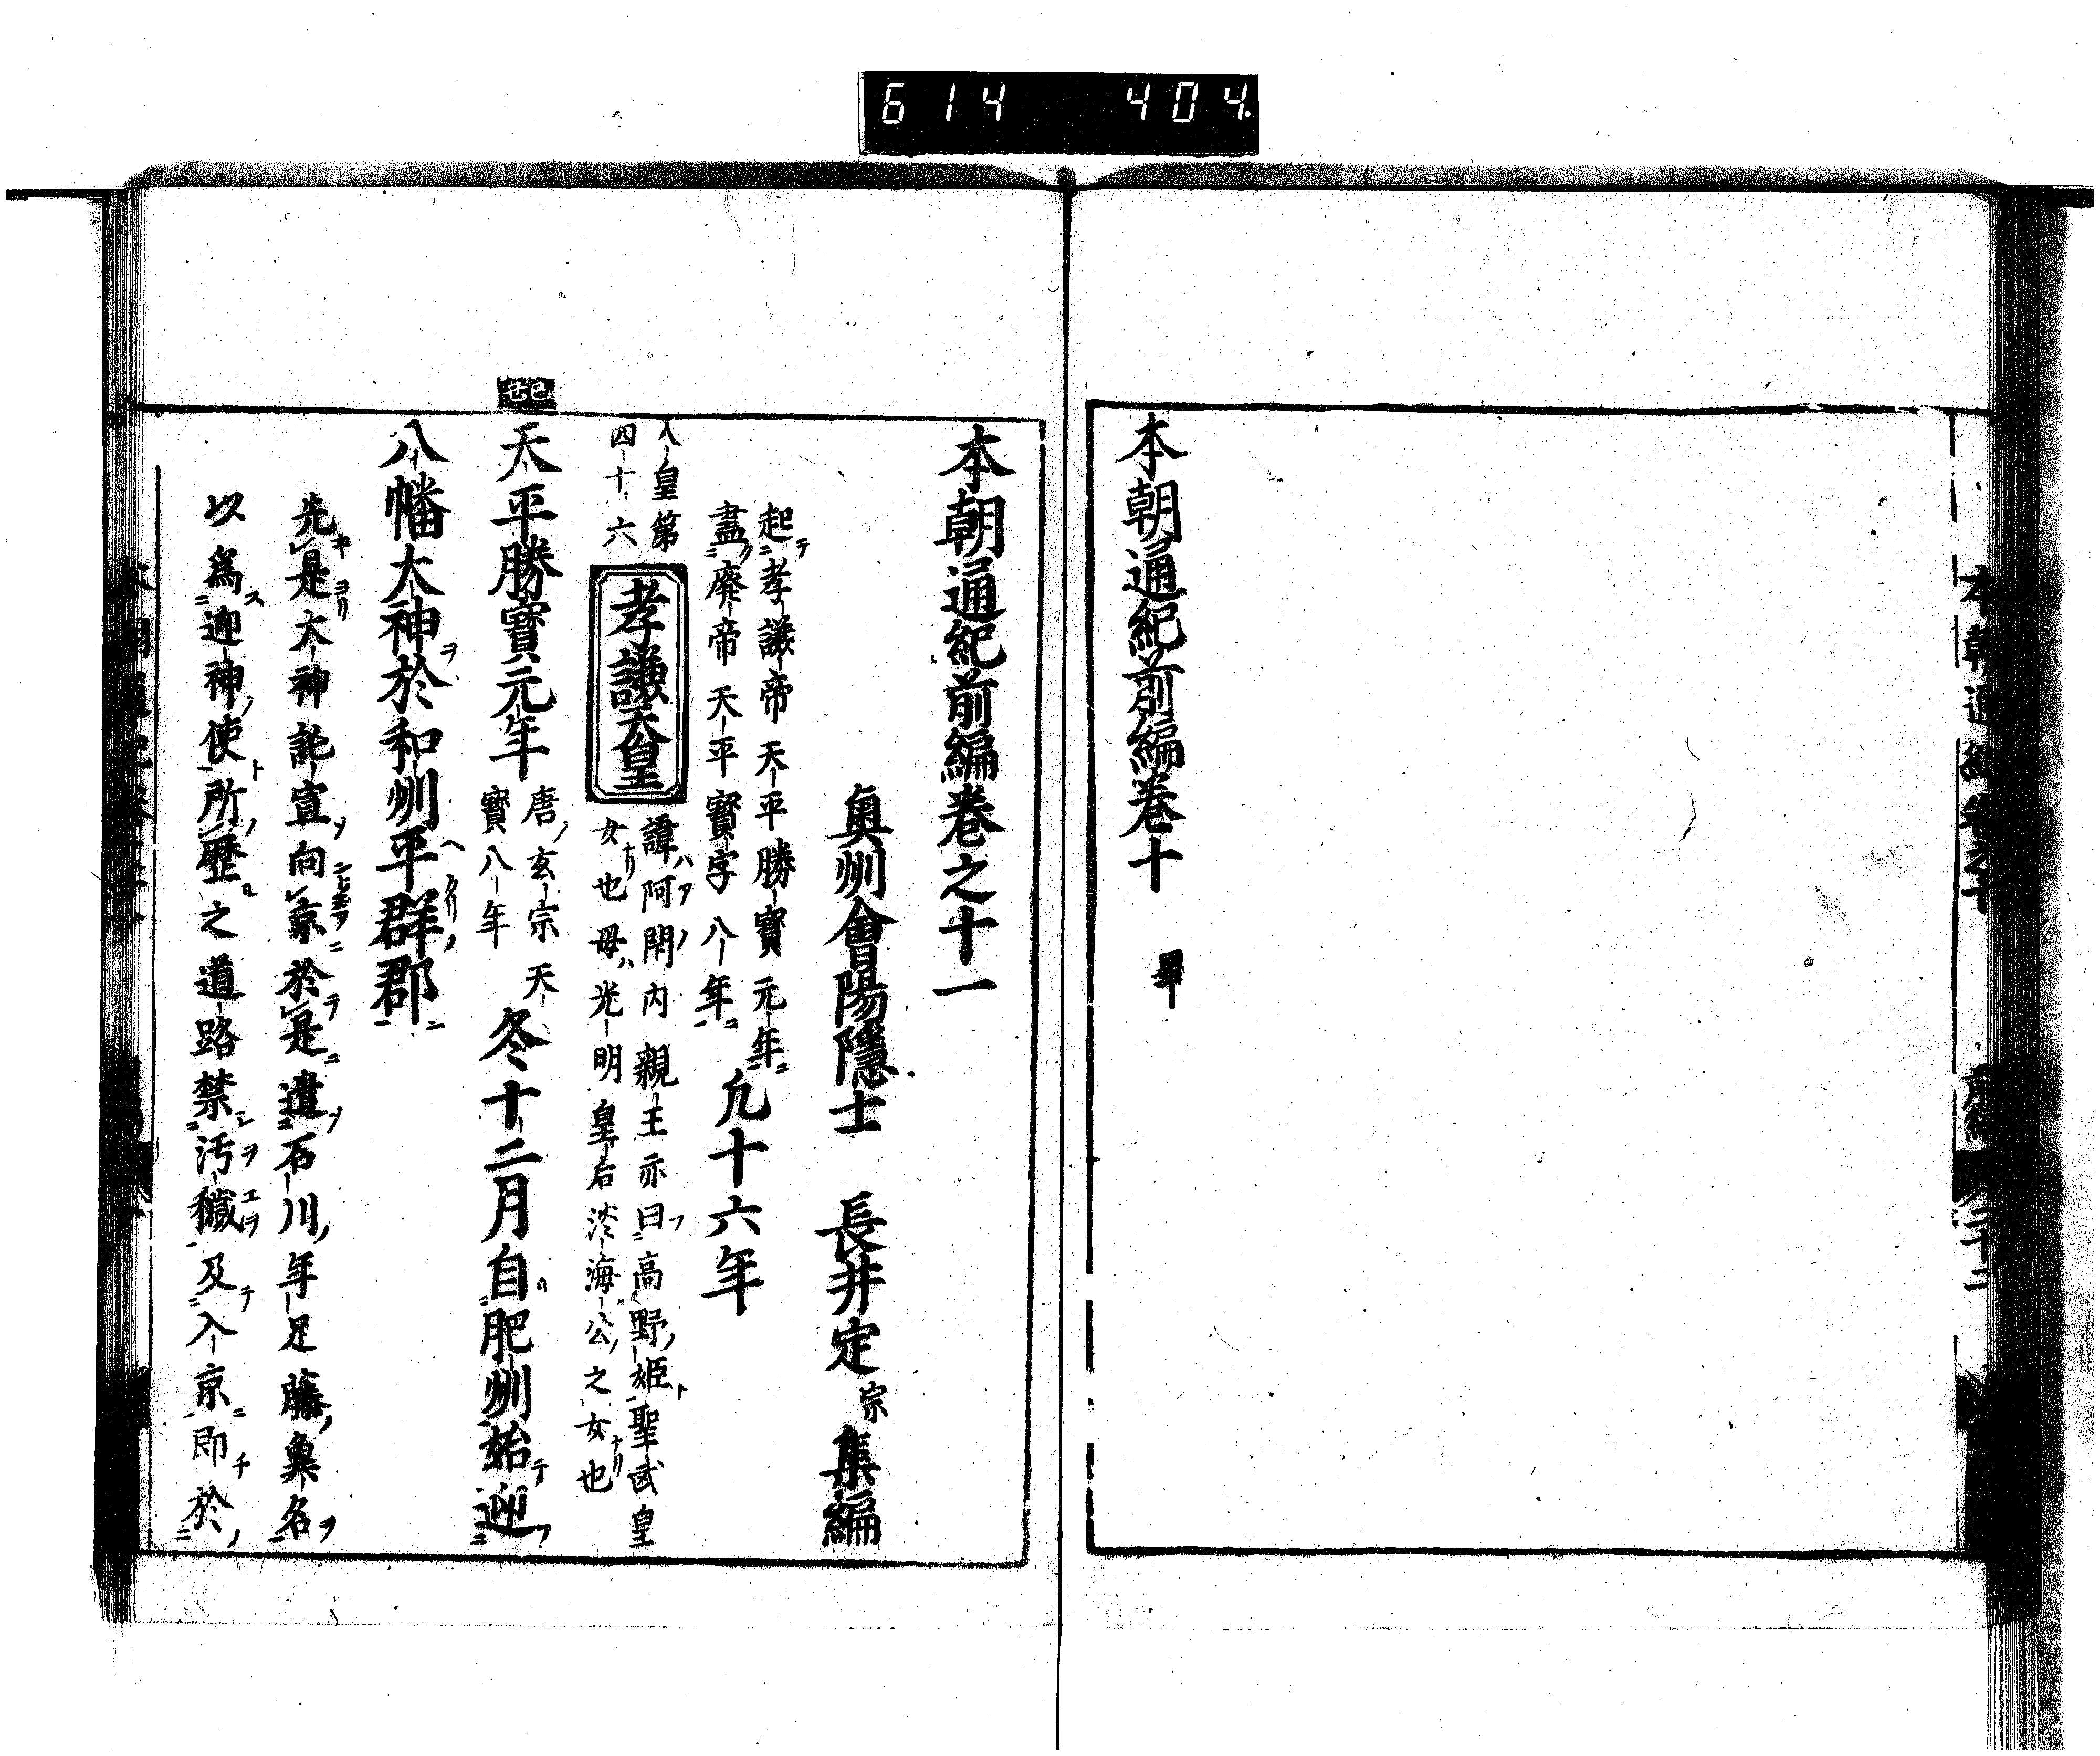 614 404
本朝通紀卷之十 前編 三十二
本朝通紀前編卷十 畢
本朝通紀前編卷之十一
奥州會陽隱士 長井定宗集編
起孝謙帝天平勝寶元年
盡廢帝天平寶字八年
凡十六年
人皇第
四十六
孝謙天皇
諱阿閇內親王亦曰高野姬聖武皇
女也母光明皇后淡海公之女也
己丑
天平勝寶元年
唐玄宗天
寶八年
冬十二月自肥州始迎
八幡大神於和州平群郡
先是大神託宣向京於是遣石川年足藤魚名
以爲迎神使所歷之道路禁汚穢及入京即於